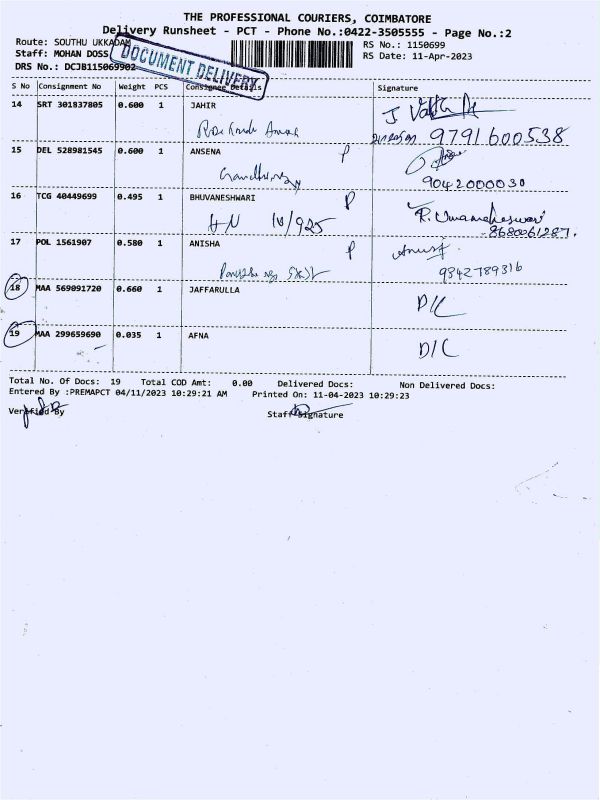 THE PROFESSIONAL COURIERS, COIMBATORE
Delivery Runsheet - PCT - Phone No.:0422-3505555 - Page No.:2
Route: SOUTHU UKKADAM
RS No.: 1150699
Staff: MOHAN DOSS
RS Date: 11-Apr-2023
DRS No.: DCJB115069902
DOCUMENT DELIVERY
S No Consignment No Weight PCS Consignee Details Signature
14 SRT 301837805 0.600 1 JAHIR
9791600538
15 DEL 528981545 0.600 1 ANSENA P
9042000030
16 TCG 40449699 0.495 1 BHUVANESHWARI P
HN 10/925 R. Umamaheswari
8680061287.
17 POL 1561907 0.580 1 ANISHA P
9342789316
18 MAA 569091720 0.660 1 JAFFARULLA D/C
19 MAA 299659690 0.035 1 AFNA D/C
Total No. Of Docs: 19 Total COD Amt: 0.00 Delivered Docs: Non Delivered Docs:
Entered By :PREMAPCT 04/11/2023 10:29:21 AM Printed On: 11-04-2023 10:29:23
Verified By Staff Signature